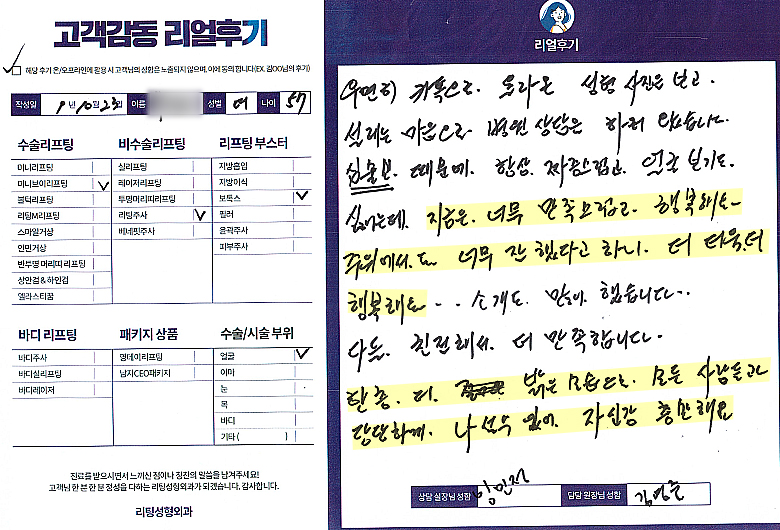 고객감동 리얼후기
해당 후기 온/오프라인에 활용 시 고객님의 상황은 노출되지 않으며, 이에 동의 합니다(EX. 김OO님의 후기)
작성일 년 10월 23일 이름 성별 여 나이 57
수술리프팅 비수술리프팅 리프팅 부스터
미니리프팅 실리프팅 지방흡입
미니브이리프팅 ✓ 레이저리프팅 지방이식
불터리프팅 투명머리띠리프팅 보톡스 ✓
리팅M리프팅 리팅주사 ✓ 필러
스마일거상 베네핏주사 윤곽주사
안면거상 피부주사
반투명 머리띠 리프팅
상안검 & 하안검
엘라스티꿈
바디 리프팅 패키지 상품 수술/시술 부위
바디주사 영데이리프팅 얼굴 ✓
바디실리프팅 남자CEO패키지 이마
바디레이저 눈
목
바디
기타 ( )
진료를 받으시면서 느끼신 점이나 칭찬의 말씀을 남겨주세요!
고객님 한 분 한 분 정성을 다하는 리팅성형외과가 되겠습니다. 감사합니다.
리팅성형외과
리얼후기
우연히 카톡으로 올라온 성형 사진을 보고.
설레는 마음으로 병원 상담을 하러 왔습니다.
심술보. 때문에. 항상. 짜증스럽고. 얼굴 보기도.
싫었는데. 지금은. 너무 만족스럽고. 행복해요~
주위에서.도 너무 잘 했다고 하니. 더 더욱.더
행복해요.. 소개도. 많이. 했습니다..
다들. 친절해서. 더 만족합니다.
한층. 더. 밝은 모습으로. 모든 사람들과
당당하게. 나설수 있어. 자신감 충만해요
상담 실장님 성함 담당 원장님 성함